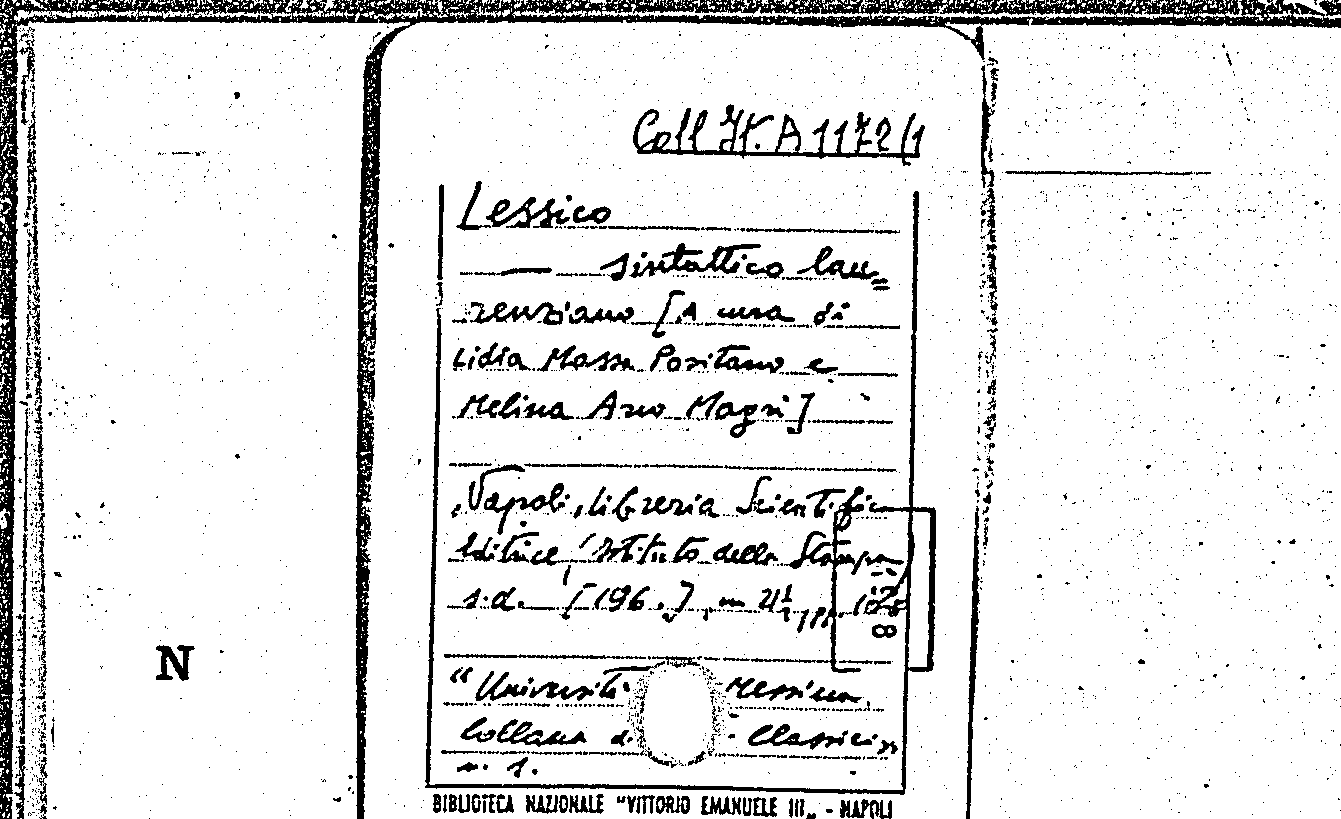 Coll It. A 1172/1
Lessico
— sintattico lau=
renziano [A cura di
Lidia Massa Positano e
Melina Arco Magrì]
Napoli, Libreria Scientifica
Editrice, Istituto della Stampa
s.d. [196.], in
"Università Messina,
Collana Classici„
n. 1.
BIBLIOTECA NAZIONALE "VITTORIO EMANUELE III„ - NAPOLI
N